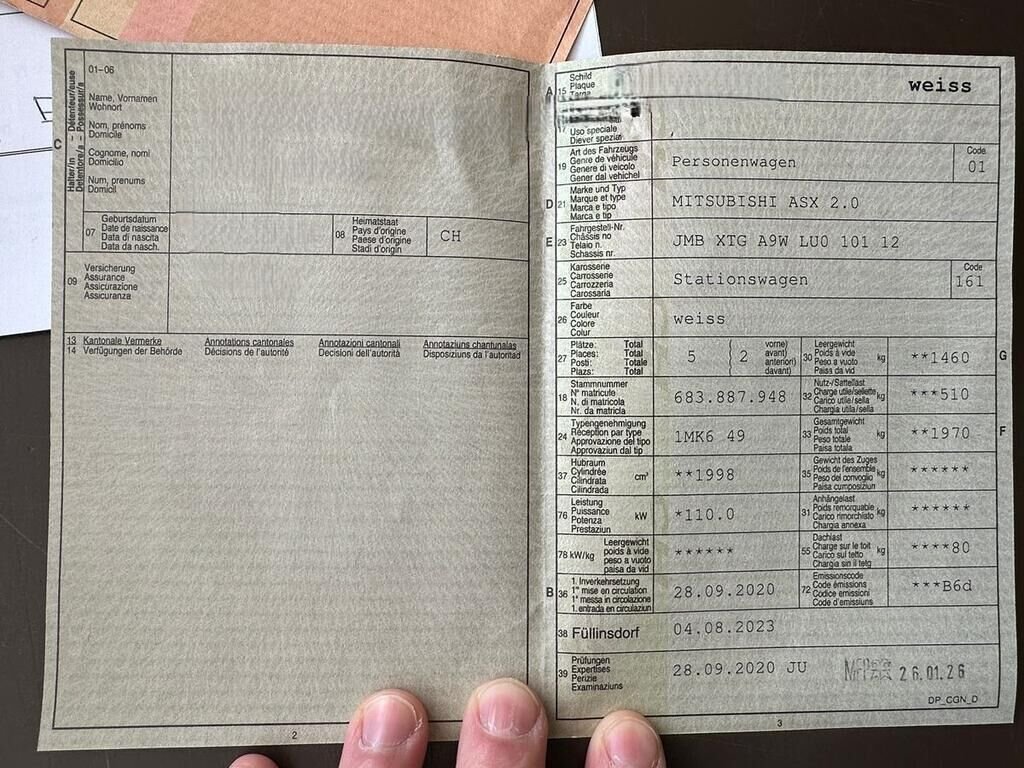 01-06
Halter/in - Détenteur/euse
Detentore/a - Possessur/a
C
Name, Vornamen
Wohnort
Nom, prénoms
Domicile
Cognome, nomi
Domicilio
Num, prenums
Domicil
07
Geburtsdatum
Date de naissance
Data di nascita
Data da nasch.
08
Heimatstaat
Pays d'origine
Paese d'origine
Stadi d'origin
CH
09
Versicherung
Assurance
Assicurazione
Assicuranza
13 Kantonale Vermerke Annotations cantonales Annotazioni cantonali Annotaziuns chantunalas
14 Verfügungen der Behörde Décisions de l'autorité Decisioni dell'autorità Disposiziuns da l'autoritad
2
A 15
Schild
Plaque
Targa
weiss
17
Uso speciale
Diever spezial
19
Art des Fahrzeugs
Genre de véhicule
Genere di veicolo
Gener dal vehichel
Personenwagen
Code
01
D 21
Marke und Typ
Marque et type
Marca e tipo
Marca e tip
MITSUBISHI ASX 2.0
E 23
Fahrgestell-Nr.
Châssis no
Telaio n.
Schassis nr.
JMB XTG A9W LU0 101 12
25
Karosserie
Carrosserie
Carrozzeria
Carossaria
Stationswagen
Code
161
26
Farbe
Couleur
Colore
Colur
weiss
27
Plätze: Total
Places: Total
Posti: Totale
Plazs: Total
5 { 2
vorne)
avant)
anteriori)
davant)
30
Leergewicht
Poids à vide
Peso a vuoto
Paisa da vid
kg
**1460
G
18
Stammnummer
N° matricule
N. di matricola
Nr. da matricla
683.887.948
32
Nutz-/Sattellast
Charge utile/sellette
Carico utile/sella
Chargia utila/sella
kg
***510
24
Typengenehmigung
Réception par type
Approvazione del tipo
Approvaziun dal tip
1MK6 49
33
Gesamtgewicht
Poids total
Peso totale
Paisa totala
kg
**1970
F
37
Hubraum
Cylindrée
Cilindrata
Cilindrada
cm³
**1998
35
Gewicht des Zuges
Poids de l'ensemble
Peso del convoglio
Paisa cumposiziun
kg
******
76
Leistung
Puissance
Potenza
Prestaziun
kW
*110.0
31
Anhängelast
Poids remorquable
Carico rimorchiato
Chargia annexa
kg
******
78 kW/kg
Leergewicht
poids à vide
peso a vuoto
paisa da vid
******
55
Dachlast
Charge sur le toit
Carico sul tetto
Chargia sin il tetg
kg
****80
B 36
1. Inverkehrsetzung
1re mise en circulation
1a messa in circolazione
1. entrada en circulaziun
28.09.2020
72
Emissionscode
Code émissions
Codice emissioni
Code d'emissiuns
***B6d
38 Füllinsdorf
04.08.2023
39
Prüfungen
Expertises
Perizie
Examinaziuns
28.09.2020 JU
26.01.26
DP_CGN_D
3